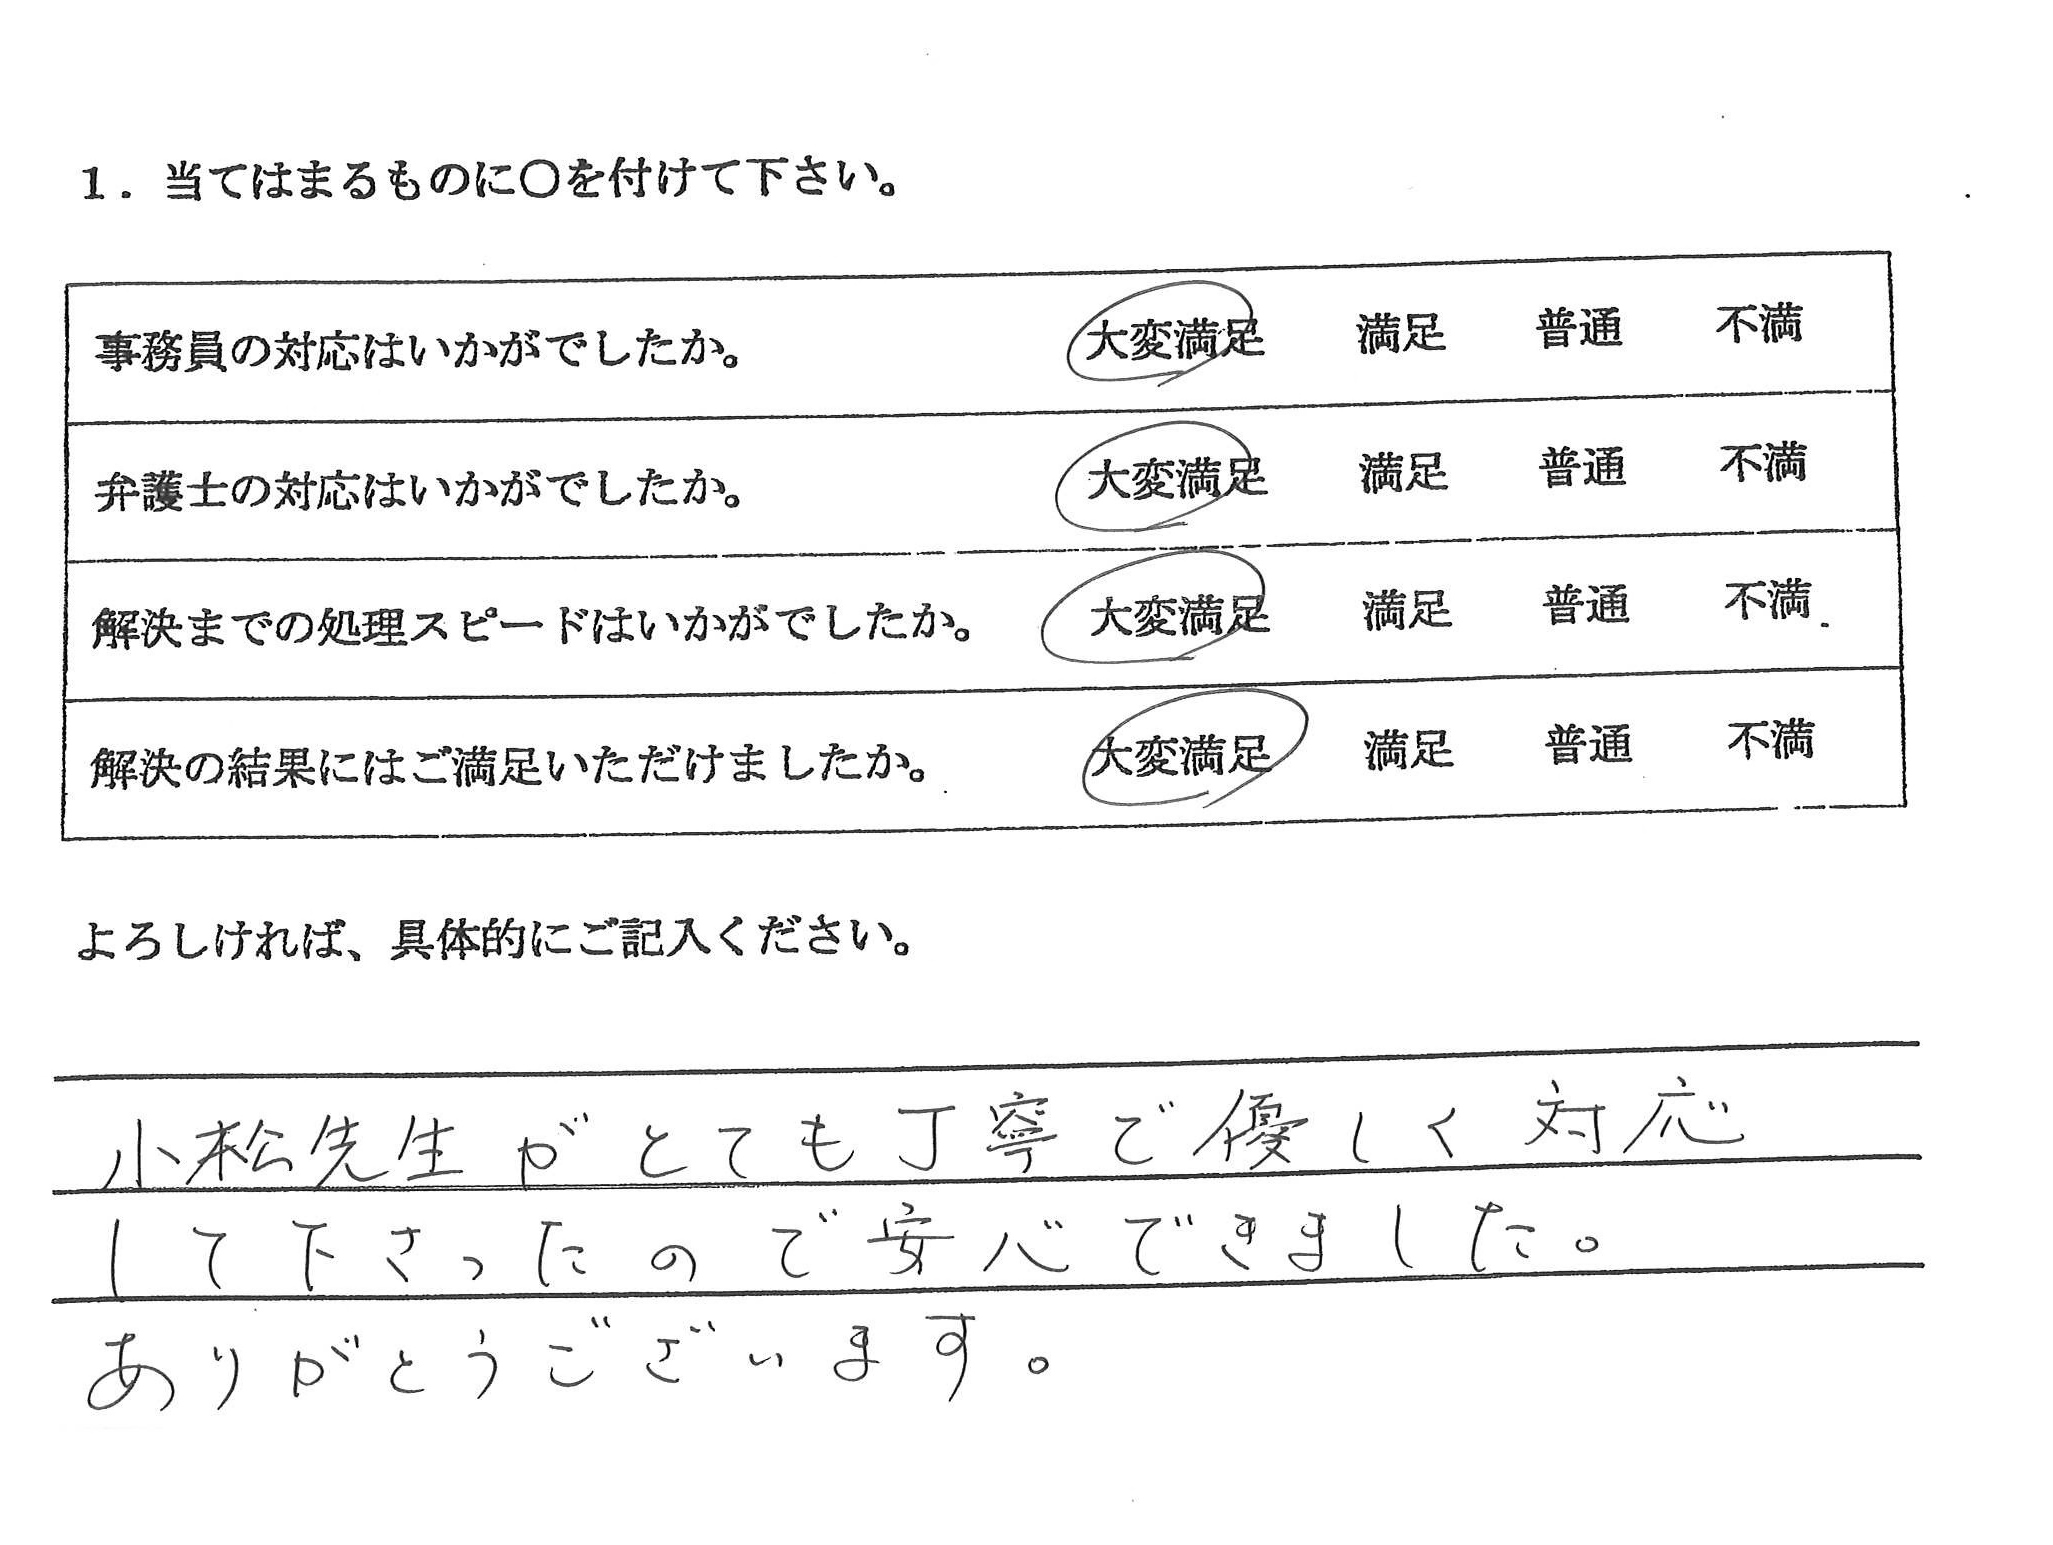 1. 当てはまるものに〇を付けて下さい。
事務員の対応はいかがでしたか。 大変満足 満足 普通 不満
弁護士の対応はいかがでしたか。 大変満足 満足 普通 不満
解決までの処理スピードはいかがでしたか。 大変満足 満足 普通 不満
解決の結果にはご満足いただけましたか。 大変満足 満足 普通 不満
よろしければ、具体的にご記入ください。
小松先生がとても丁寧で優しく対応
して下さったので安心できました。
ありがとうございます。